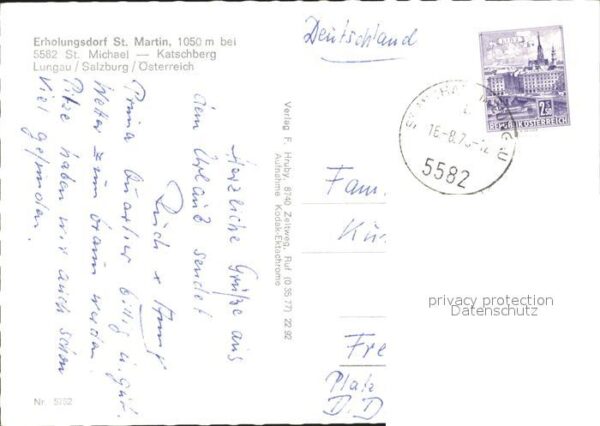 Erholungsdorf St. Martin, 1050 m bei
5582 St. Michael — Katschberg
Lungau / Salzburg / Österreich
Herzliche Grüße aus
dem Urlaub sendet
Prima Quartier billig u. gut.
Wetter zum braun werden.
Pilze haben wir auch schon
viel gefunden.
Nr. 5752
Verlag F. Hruby, 8740 Zeltweg, Ruf (0 35 77) 22 92
Aufnahme Kodak-Ektachrome
Deutschland
2.50
REPUBLIK ÖSTERREICH
16.-8.7
5582
Fam.
Fre
Platz
D.D
privacy protection
Datenschutz